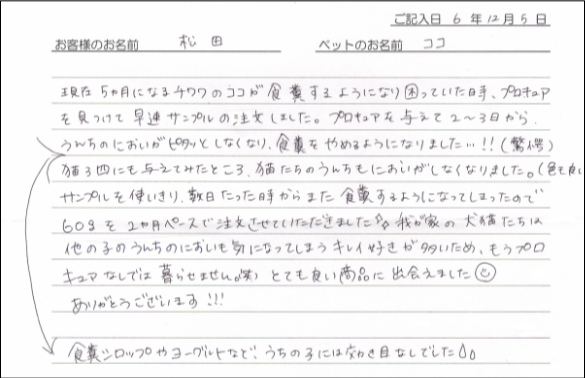 ご記入日 6 年 12 月 5 日
お客様のお名前 松田 ペットのお名前 ココ
現在 5ヵ月になるチワワのココが食糞するようになり困っていた時、プロキュア
を見つけて早速サンプルの注文しました。プロキュアを与えて2〜3日から、
うんちのにおいがピタッとしなくなり、食糞をやめるようになりました…!!(驚愕)
猫3匹にも与えてみたところ、猫たちのうんちもにおいがしなくなりました。(色も良
サンプルを使いきり、数日たった時からまた食糞するようになってしまったので
60gを2ヵ月ペースで注文させていただきました☆ 我が家の犬猫たちは
他の子のうんちのにおいも気になってしまうキレイ好きが多いため、もうプロ
キュアなしでは暮らせません。(笑) とても良い商品に出会えました
ありがとうございます!!!
食糞シロップやヨーグルトなど、うちの子には効き目なしでした